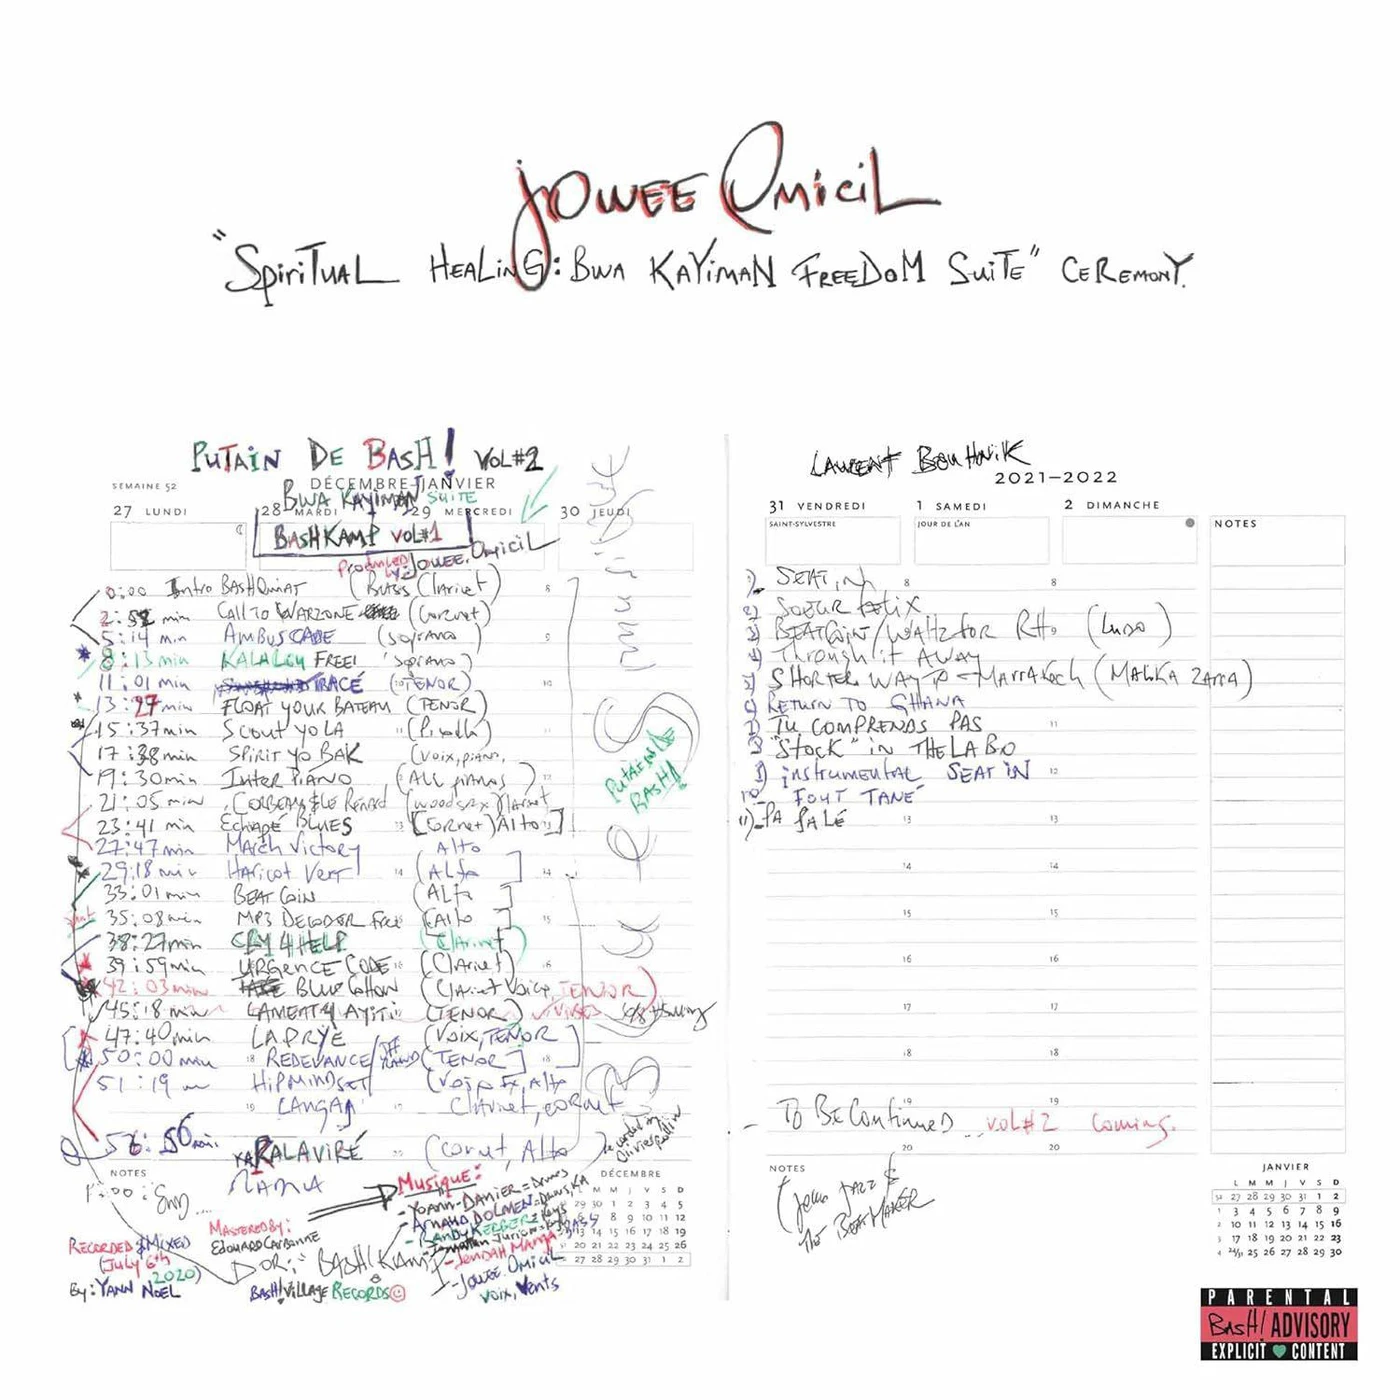 JOWEE OMiCiL
"SpiriTuAL HeALinG: BWA KAYiMAN FREEDOM SuiTE" CEREMONY.
PuTAiN DE BASH! VOL#2
SEMAINE 52
DÉCEMBRE–JANVIER
BWA KAYIMAN SUITE
27 LUNDI
28 MARDI
29 MERCREDI
30 JEUDI
BASHKAMP VOL#1
Produced by: JOWEE OMICIL
0:00 Intro BASHQUIAT (Bass Clarinet)
2:52 min CALL TO WARZONE (Cornet)
5:14 min AMBUSCADE (soprano)
8:13 min KALALOU FREE! (soprano)
11:01 min TRACÉ (TENOR)
13:27 min FLOAT YOUR BATEAU (TENOR)
15:37 min Scout yo LA (Piccolo)
17:38 min SPIRIT yo BAK (voix, piano,
19:30 min INTER PIANO (ALL pianos)
21:05 min CORBEAU & Le Renard
23:41 min Echapé BLUES [Cornet) Alto]
27:47 min MARCH VICTORY Alto
29:18 min HARICOT VERT (Alto]
33:01 min BEAT COIN (Alto]
35:08 min MP3 DECODER Free (Alto]
38:27 min CRY 4 HELP (Clarinet)
39:59 min URGENCE CODE (Clarinet)
42:03 min BLUE COTTON (Clarinet Voice, TENOR)
45:18 min LAMENT 4 AYITI (TENOR)
47:40 min LAPRYE (Voix, TENOR
50:00 min REDEVANCE/ (TENOR]
51:19 HIPMINDSET (Voip Fx, Alto
LANGAJ Clarinet, cornet
56:50 min KARALAVIRÉ (Cornet, Alto)
PUTAIN DE BASH!
NOTES
MASTERED By: Edouard Carbonne
RECORDED & MIXED (July 6th 2020) By: YANN NOEL
DOR: BASH! KAMP
BASH! VillAge RECORDS ©
Musique:
- Yoann DANIER = Drums
- Arnaud DOLMEN = Drums, KA
- Randy KERBER = Keys
- Jonathan Jurion
- JENDAH MANGA = BASS
- JOWEE OMICIL voix, Vents
DÉCEMBRE
L M M J V S D
29 30 1 2 3 4 5
6 7 8 9 10 11 12
13 14 15 16 17 18 19
20 21 22 23 24 25 26
27 28 29 30 31 1 2
LAURENT BOUHNIK
2021–2022
31 VENDREDI
1 SAMEDI
2 DIMANCHE
SAINT-SYLVESTRE
JOUR DE L'AN
NOTES
1) SEAT in
2) Soeur Felix
3) BEATCOIN/WALTZ for RH (Ludo)
4) Through it AWAY
5) SHORTER WAY to MARRAKECH (MALIKA ZARRA)
6) RETURN TO GHANA
7) TU COMPRENDS PAS
8) "STOCK" in THE LABO
9) instrumental SEAT IN
10) FOUT TANE
11) PA PALÉ
To BE ContinueD ... vol#2 coming.
NOTES
(John JAZZ & The BEATMAKER
JANVIER
L M M J V S D
52 27 28 29 30 31 1 2
1 3 4 5 6 7 8 9
2 10 11 12 13 14 15 16
3 17 18 19 20 21 22 23
4 24/31 25 26 27 28 29 30
PARENTAL
BASH! ADVISORY
EXPLICIT CONTENT